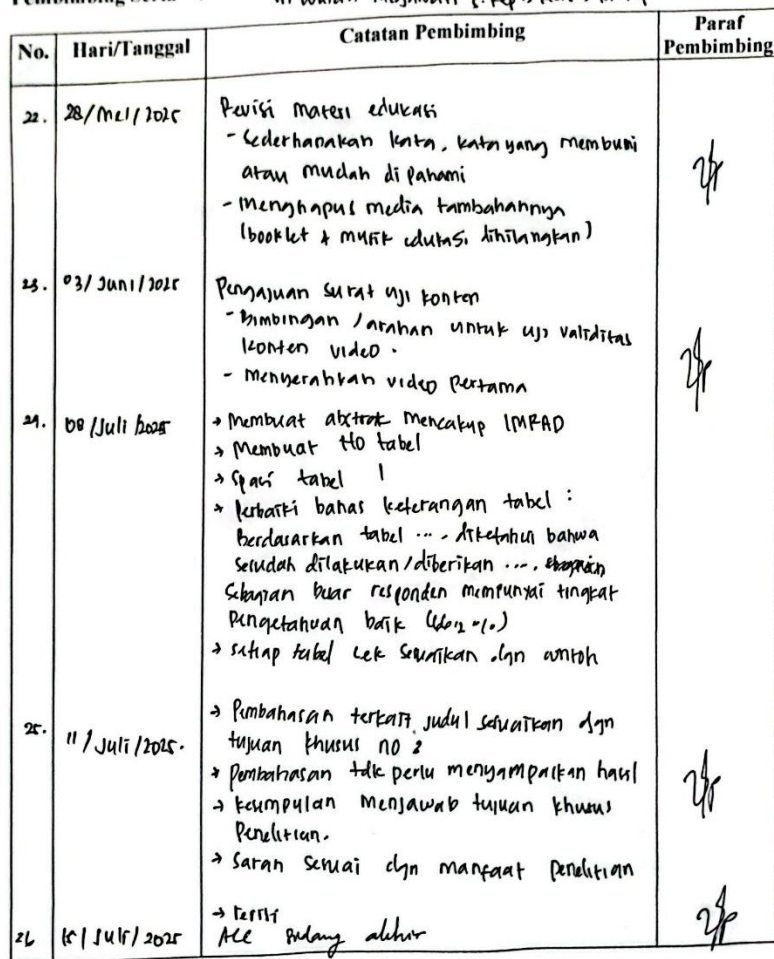 No. Hari/Tanggal Catatan Pembimbing Paraf Pembimbing
22. 28/Mei/2025 Revisi materi edukasi
- Sederhanakan kata, kata yang membumi
atau mudah di pahami
- menghapus media tambahannya
(booklet & musik edukasi dihilangkan)
23. 03/Juni/2025 Pengajuan surat uji konten
- Bimbingan /arahan untuk uji validitas
konten video.
- Menyerahkan video Pertama
24. 08/Juli/2025 → Membuat abstrak mencakup IMRAD
→ Membuat no tabel
→ Spasi tabel 1
→ Perbaiki bahas keterangan tabel :
Berdasarkan tabel ..., diketahui bahwa
sesudah dilakukan/diberikan ...,
Sebagian besar responden mempunyai tingkat
Pengetahuan baik
→ setiap tabel cek sesuaikan dgn contoh
25. 11/Juli/2025. → Pembahasan terkait judul sesuaikan dgn
tujuan khusus no 2
→ pembahasan tdk perlu menyampaikan hasil
→ kesimpulan menjawab tujuan khusus
Penelitian.
→ Saran sesuai dgn manfaat penelitian
26 15/Juli/2025 →
Acc sidang akhir